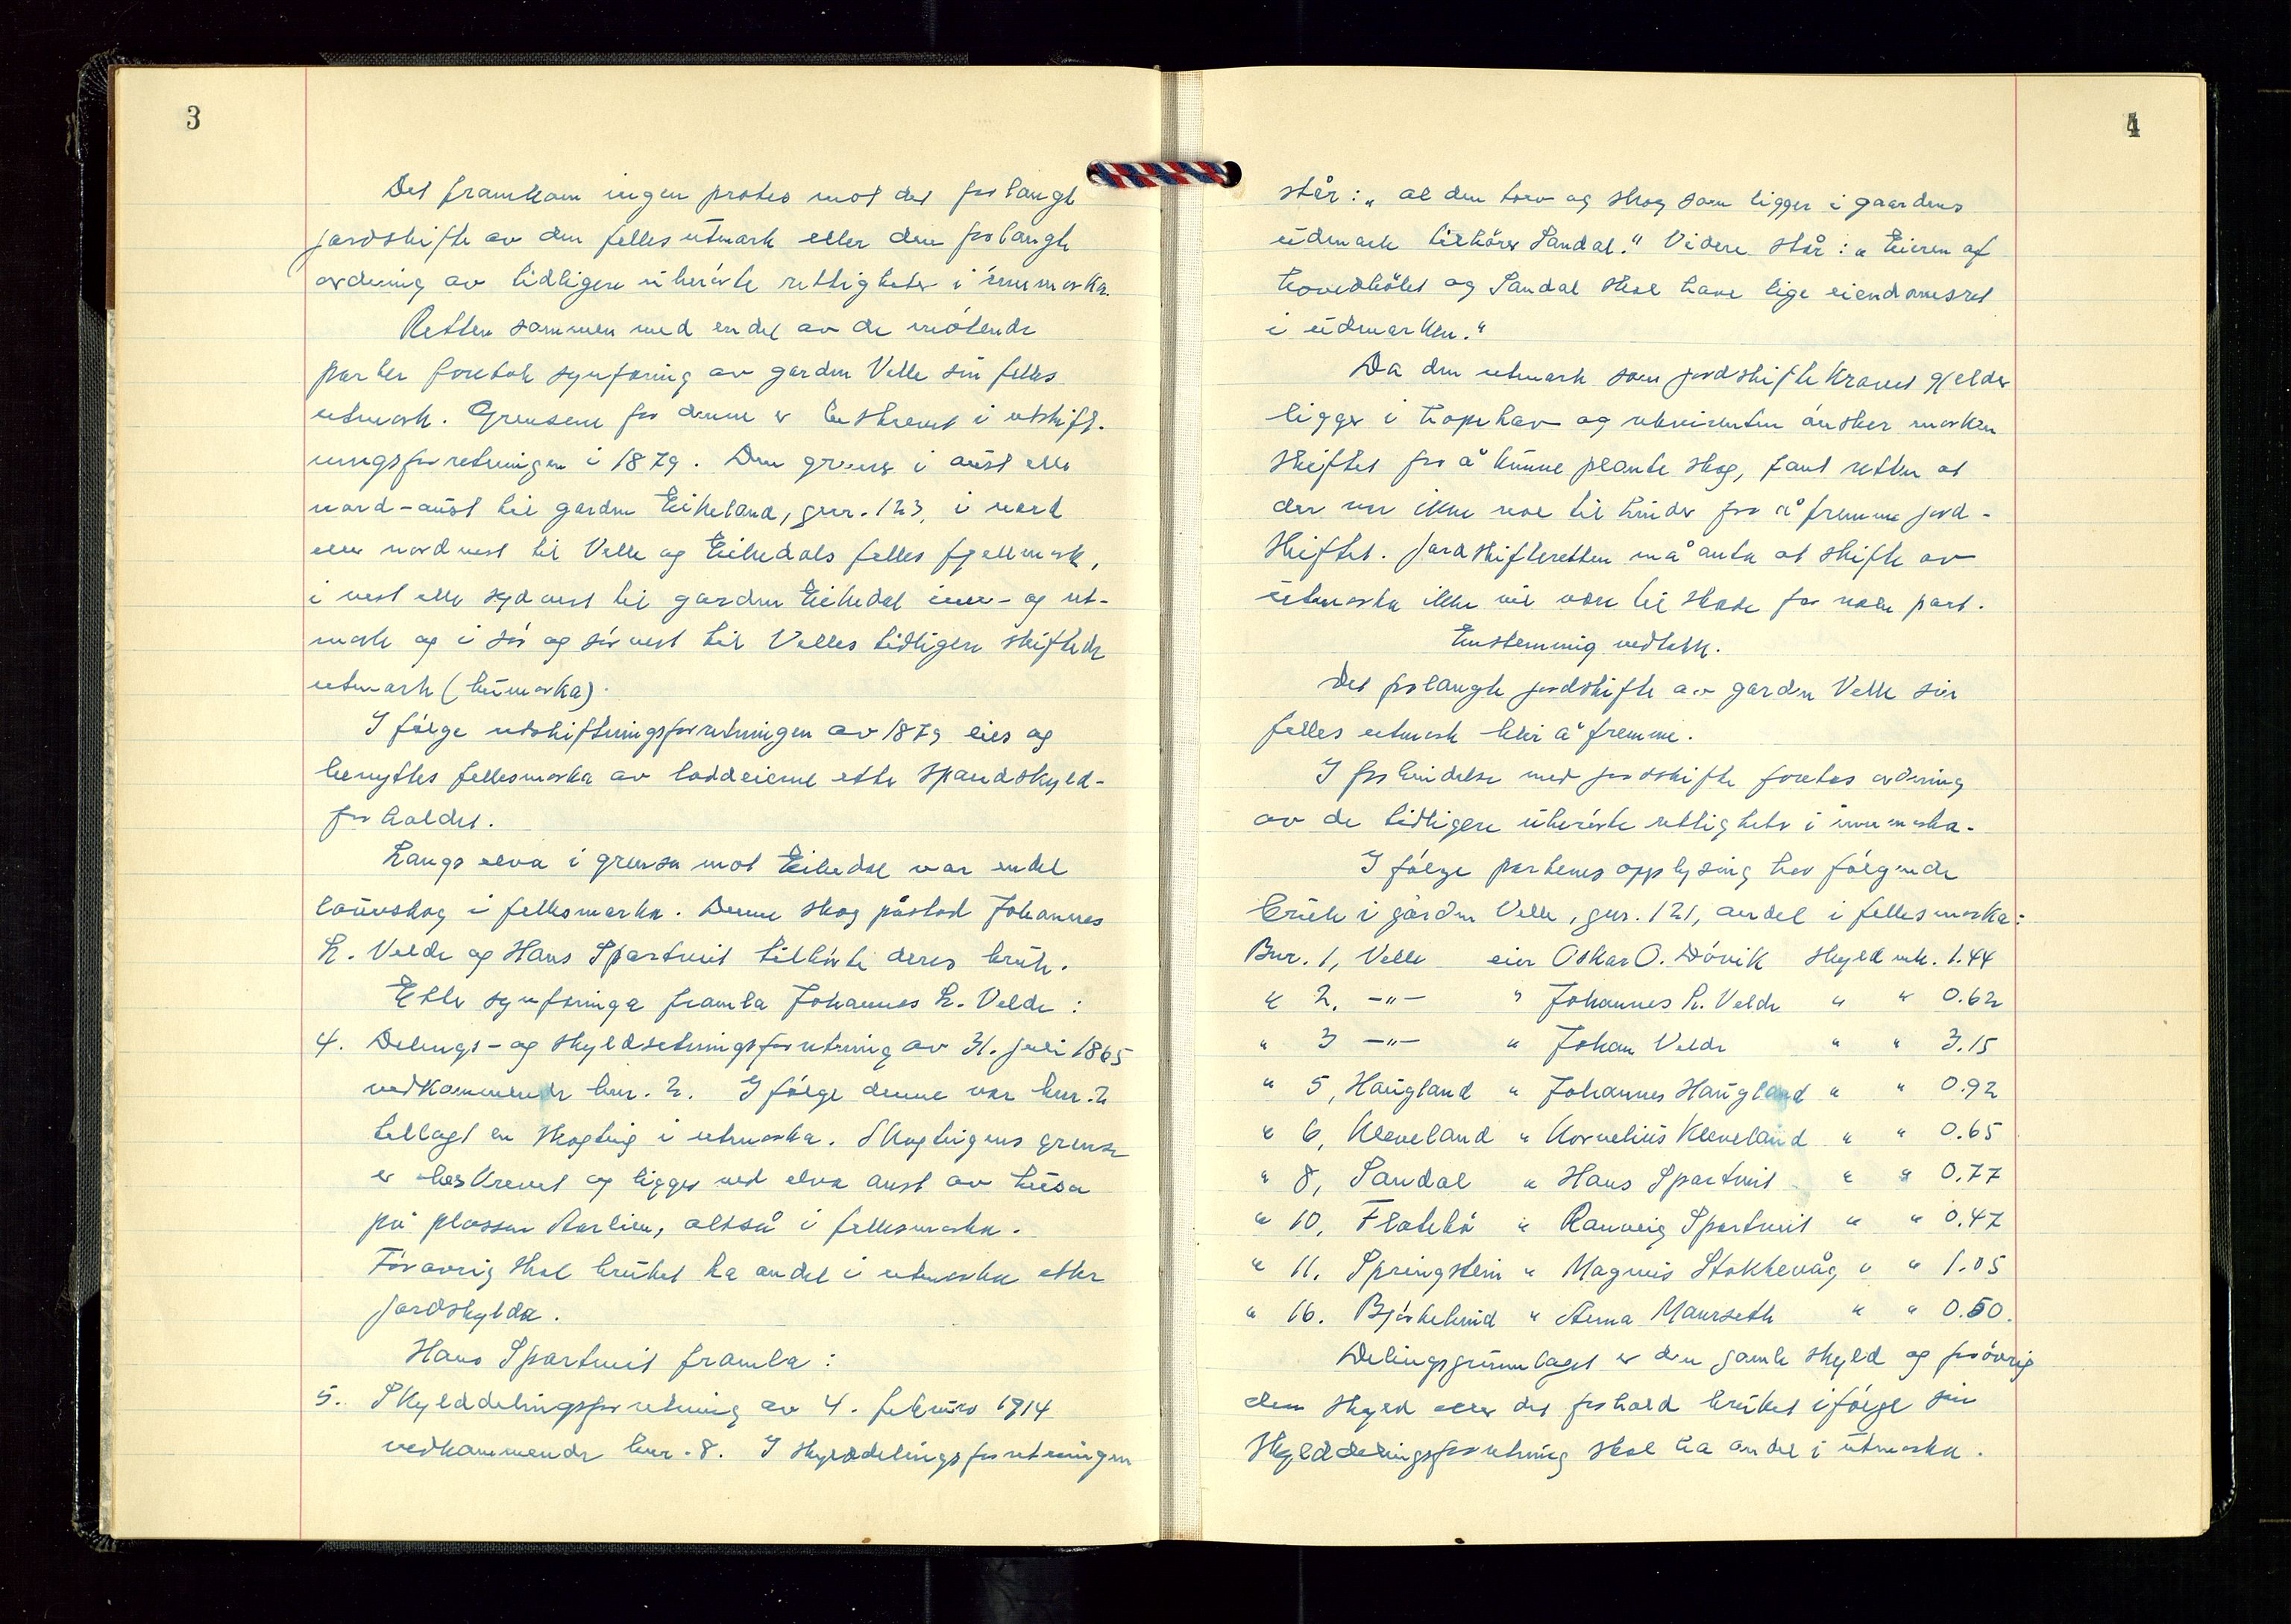 3
Det framkom ingen protes mot det forlangte
jordskifte av den felles utmark eller den forlangte
ordning av tidligere uheivte rettigheter i innmarka.
Retten sammen med en del av de møtende
parter foretok synfaring av garden Velle sin felles
utmark. Grensene for denne er beskrevet i utskift-
ningsforretningen i 1879. Den grenser i aust eller
nord-aust til garden Eikeland, gnr. 123, i nord
eller nordvest til Velle og Eikedals felles fjellmark,
i vest eller sydvest til garden Eikedal inn- og ut-
mark og i sør og sørvest til Velles tidligere skiftede
utmark (heimarka).
I følge utskiftningsforretningen av 1879 eies og
benyttes fellesmarka av loddeierne etter spandskyld-
forholdet.
Langs elva i grensa mot Eikedal var en del
lauvskog i fellesmarka. Denne skog påstod Johannes
L. Velde og Hans Spartveit tilhørte deres bruk.
Etter synfaringa framla Johannes L. Velde :
4. Delings- og skyldsetningsforretning av 31. juli 1865
vedkommende bnr. 2. I følge denne var bnr. 2
tillagt en skogteig i utmarka. Skogteigens grense
er beskrevet og ligger ved elva aust av husa
på plassen Aarlien, altså i fellesmarka.
Forøvrig skal bruket ha andel i utmarka etter
jordskylda.
Hans Spartveit framla :
5. Skylddelingsforretning av 4. februar 1914
vedkommende bnr. 8. I skylddelingsforretningen
4
står : „ al den torv og skog som ligger i gaardens
udmark tilhører Sandal." Videre står : „ Eieren af
hovedbølet og Sandal skal have lige eiendomsret
i udmarken."
Da den utmark som jordskiftekravet gjelder
ligger i hopehav og rekvirenten ønsker marken
skiftet for å kunne plante skog, fant retten at
der var ikke noe til hinder for å fremme jord-
skiftet. Jordskifteretten må anta at skifte av
utmarka ikke vil være til skade for noen part.
Enstemmig vedtakk.
Det forlangte jordskifte av garden Velle sin
felles utmark blir å fremme.
I forbindelse med jordskifte foretas ordning
av de tidligere uheivte rettigheter i innmarka.
I følge partenes opplysing har følgende
bruk i garden Velle, gnr. 121, andel i fellesmarka :
Bnr. 1, Velle eier Oskar O. Døvik skyld mk. 1.44
" 2, -"- " Johannes L. Velde " " 0.62
" 3 -"- " Johan Velde " " 3.15
" 5, Haugland " Johannes Haugland " " 0.92
" 6, Kleveland " Kornelius Kleveland " " 0.65
" 8, Sandal " Hans Spartveit " " 0.77
" 10, Flatebø " Ranveig Spartveit " " 0.47
" 11. Springstein " Magnus Stokkevåg " " 1.05
" 16. Bjørkelund " Anna Maurseth " " 0.50.
Delingsgrunnlaget er den gamle skyld og forøvrig
den skyld eller det forhold bruket ifølge sin
skylddelingsforretning skal ha andel i utmarka.